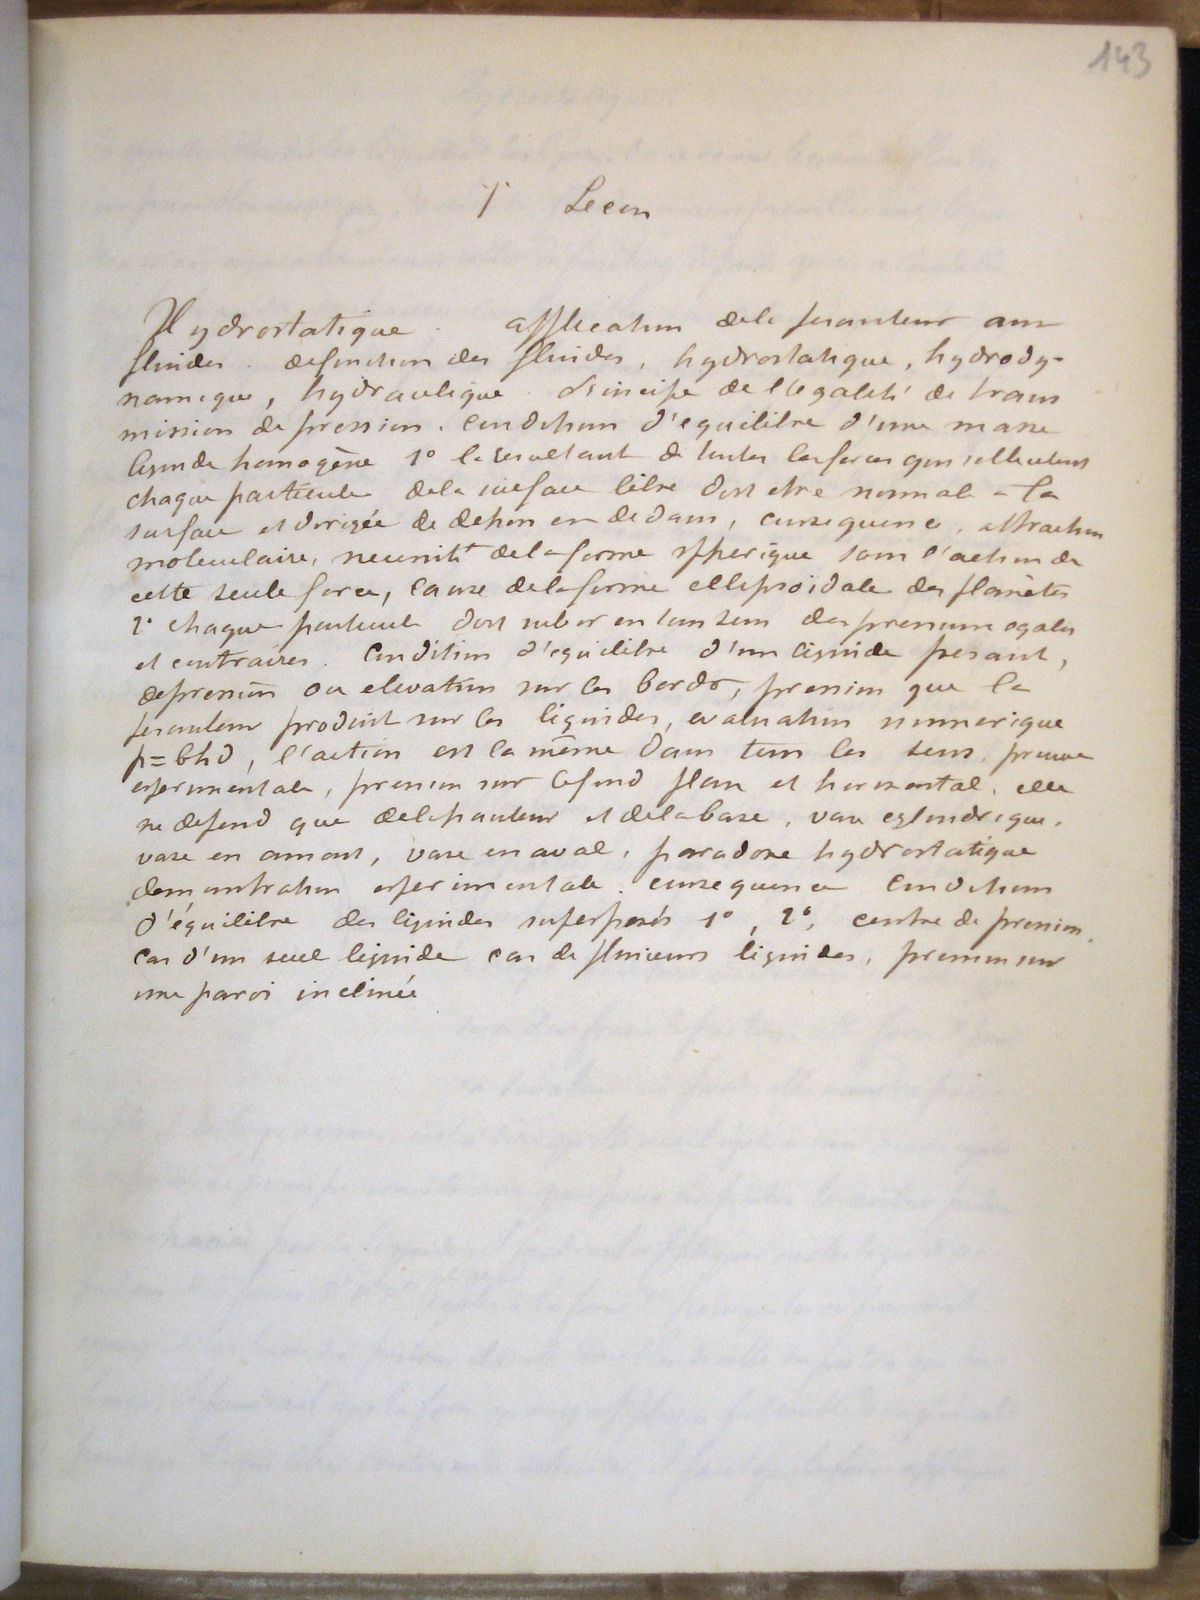 143
Lecon
Hydrostatique. application dela pesanteur aux
fluides. definition des fluides, hydrostatique, hydrody-
namique, hydraulique. Principe de l'egalité de trans
mission de pression. Conditions d'equilibre d'une masse
liquide homogène 1° la resultante de toutes les forces qui sollicitent
chaque particule dela surface libre doit etre normale a la
surface et dirigée de dehors en dedans, consequence, attraction
moleculaire, necessité dela forme spherique sous l'action de
cette seule force, cause dela forme ellipsoidale des planètes
2° chaque particule doit subir en tous sens des pressions egales
et contraires. Condition d'equilibre d'un liquide pesant,
depression ou elevation sur les bords, pression que la
pesanteur produit sur les liquides, evaluation numerique
p=bhd, l'action est la même dans tous les sens, preuve
experimentale, pression sur le fond plan et horizontal, elle
ne depend que dela hauteur et dela base, vase cylindrique,
vase en amont, vase en aval, paradoxe hydrostatique
demonstration experimentale. consequence Conditions
d'équilibre des liquides superposés 1°, 2°, centre de pression,
cas d'un seul liquide cas de plusieurs liquides, pression sur
une paroi inclinée